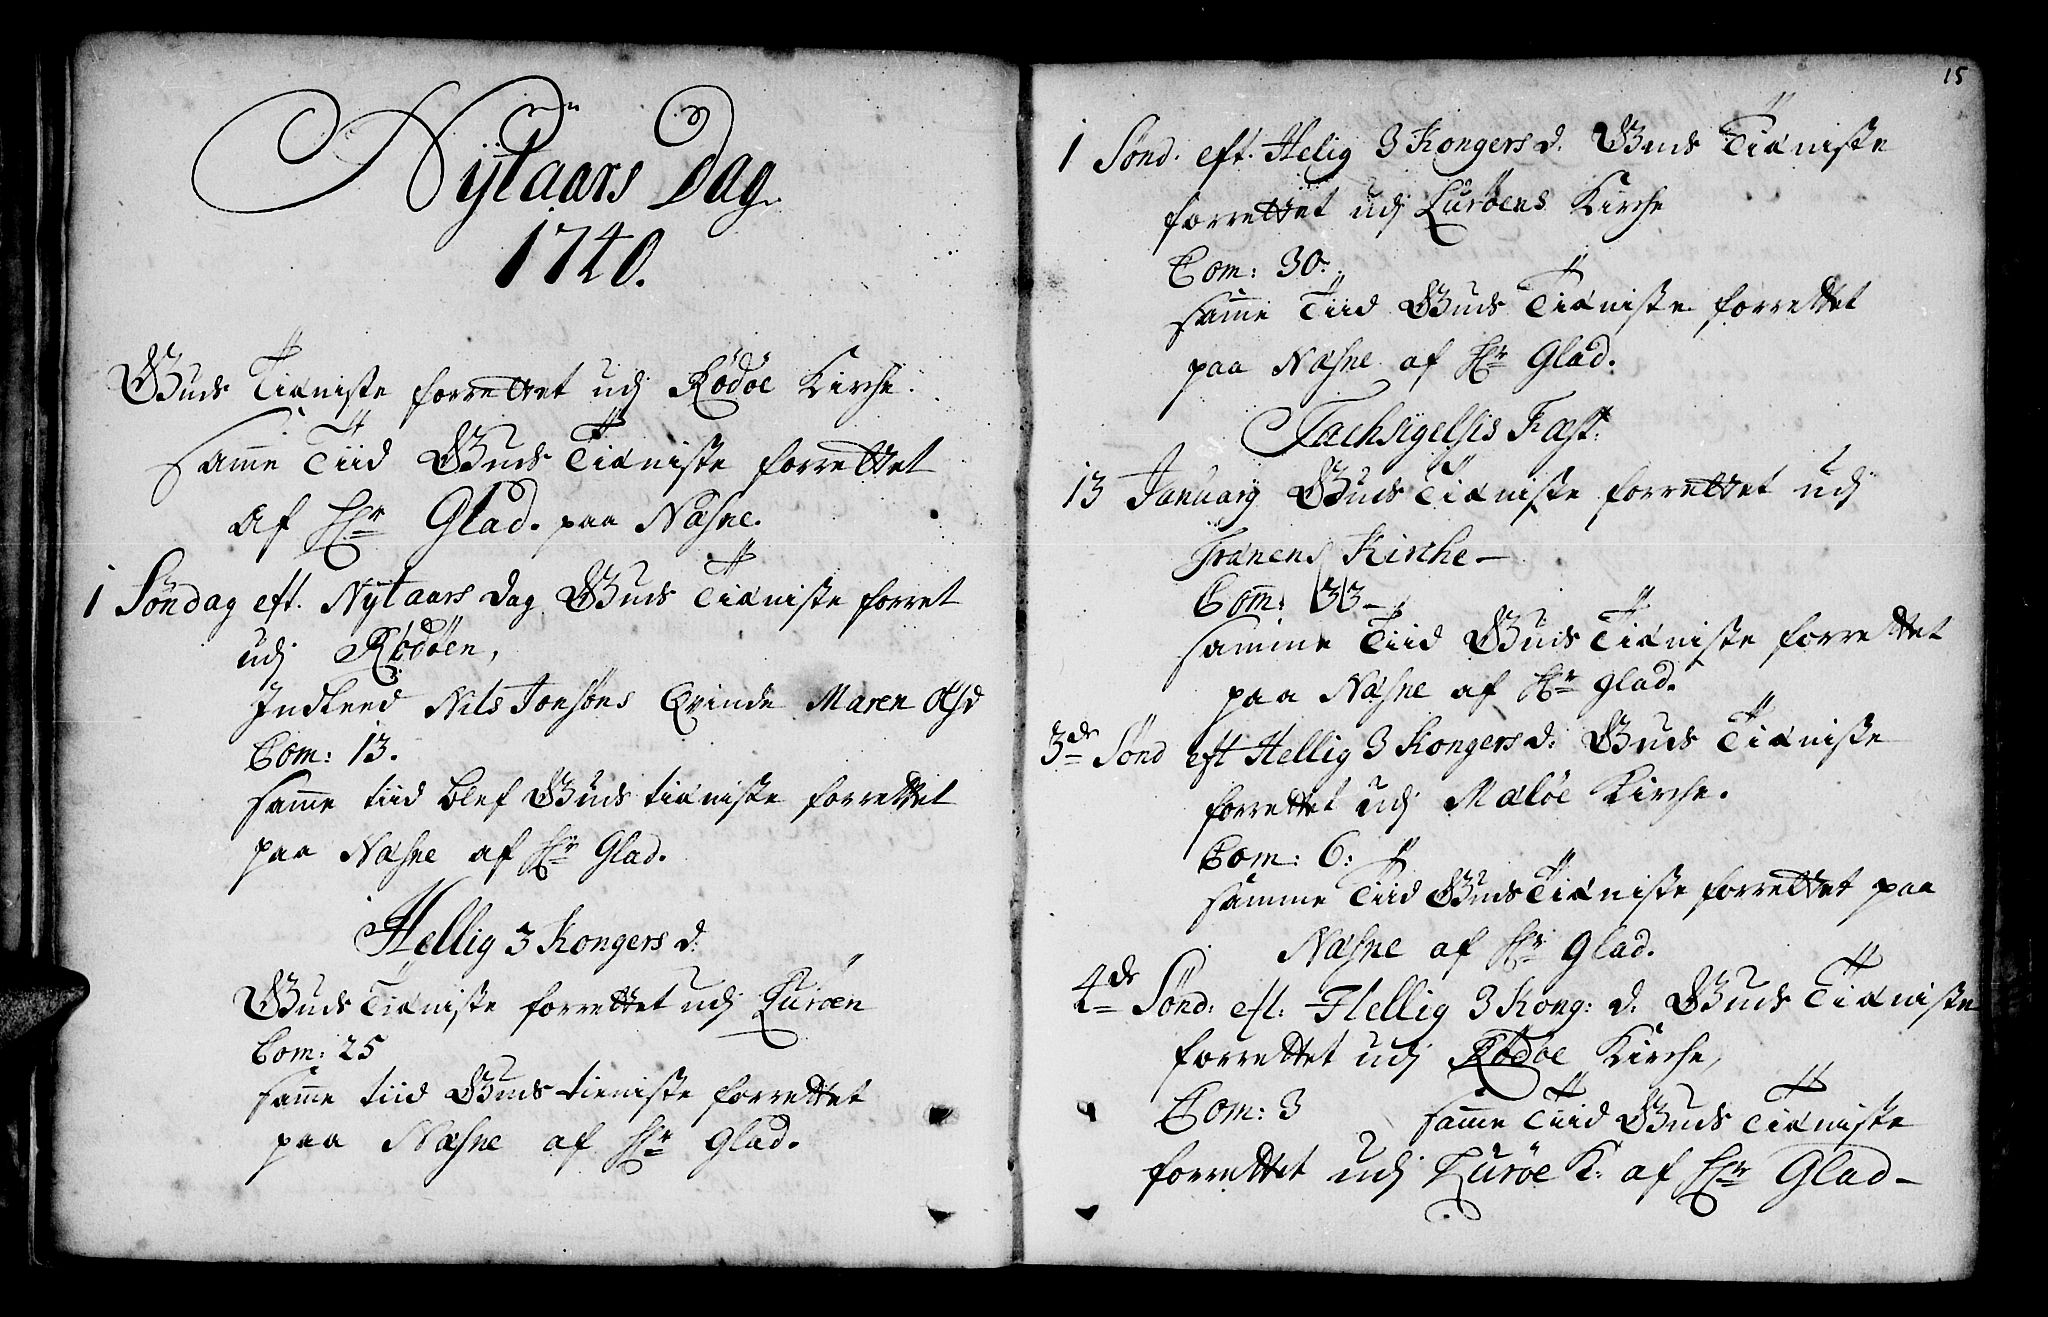 Nÿtaars Dag.
1740.
Guds Tieniste forrettet udj Rödöe Kirche.
samme Tiid Guds Tieniste forrettet
af Hr Glad. paa Næsne.
1 Söndag eft. Nÿtaars Dag Guds Tieniste forret
udj Rödöen,
Indleed Nils Jonsöns Qvinde Maren Olsd
Com: 13.
samme tiid blef Guds tieniste forrettet
paa Næsne af Hr Glad.
Hellig 3 Kongers d.
Guds Tieniste forrettet udj Luröen
Com: 25
samme tiid Guds tieniste forrettet
paa Næsne af Hr Glad.
15
1 Sönd. eft. Helig 3 Kongers d. Guds Tieniste
forrettet udj Luröens Kirche
Com: 30.
samme Tiid Guds Tieniste forrettet
paa Næsne af Hr Glad.
Tachsigelsis Fæst.
13 Januarÿ Guds Tieniste forrettet udj
Trænens Kirche
Com: 33
samme Tiid Guds Tieniste forrettet
paa Næsne af Hr Glad.
3de Sönd eft Hellig 3 Kongers d. Guds Tieniste
forrettet udj Melöe Kirche.
Com: 6:
samme Tiid Guds Tieniste forrettet paa
Næsne af Hr Glad.
4de Sönd: eft: Hellig 3 Kong: d. Guds Tieniste
forrettet udj Rödöe Kirche,
Com: 3 samme Tiid Guds Tieniste
forrettet udj Luröe K: af Hr Glad